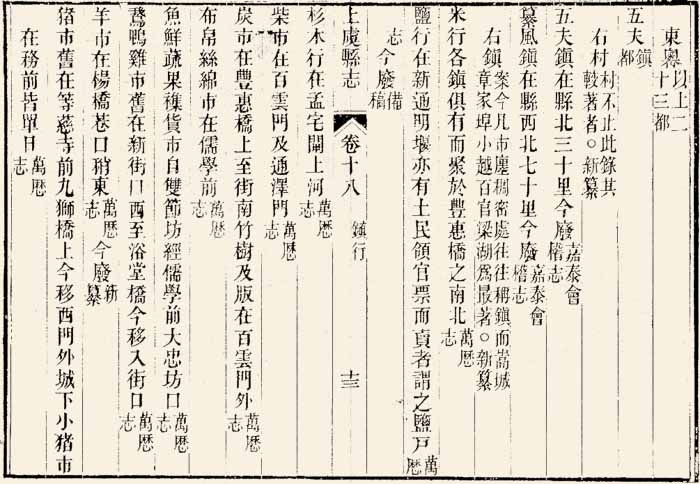 東粵以上二十三都
五夫鎮都
右村村不止此錄其較著者○新纂
五夫鎮在縣北三十里今廢嘉泰會稽志
纂風鎮在縣西北七十里今廢嘉泰會稽志
右鎮案今凡市廛稠密處往往稱鎮而嵩城章家埠小越百官梁湖爲最著○新纂
米行各鎮俱有而聚於豐惠橋之南北萬厯志
鹽行在新通明堰亦有土民領官票而賣者謂之鹽戸萬厯
志今廢備稿
上虞縣志 卷十八 鎮行 十三
杉木行在孟宅閘上河萬厯志
柴市在百雲門及通澤門萬厯志
炭市在豐惠橋上至街南竹樹及版在百雲門外萬厯志
布帛絲綿市在儒學前萬厯志
魚鮮蔬果穅貨市自雙節坊經儒學前大忠坊口萬厯志
鵞鴨雞市舊在新街口西至浴堂橋今移入街口萬厯志
羊市在楊橋巷口稍東萬厯志今廢新纂
猪市舊在等慈寺前九獅橋上今移西門外城下小猪市
在務前皆單日萬厯志